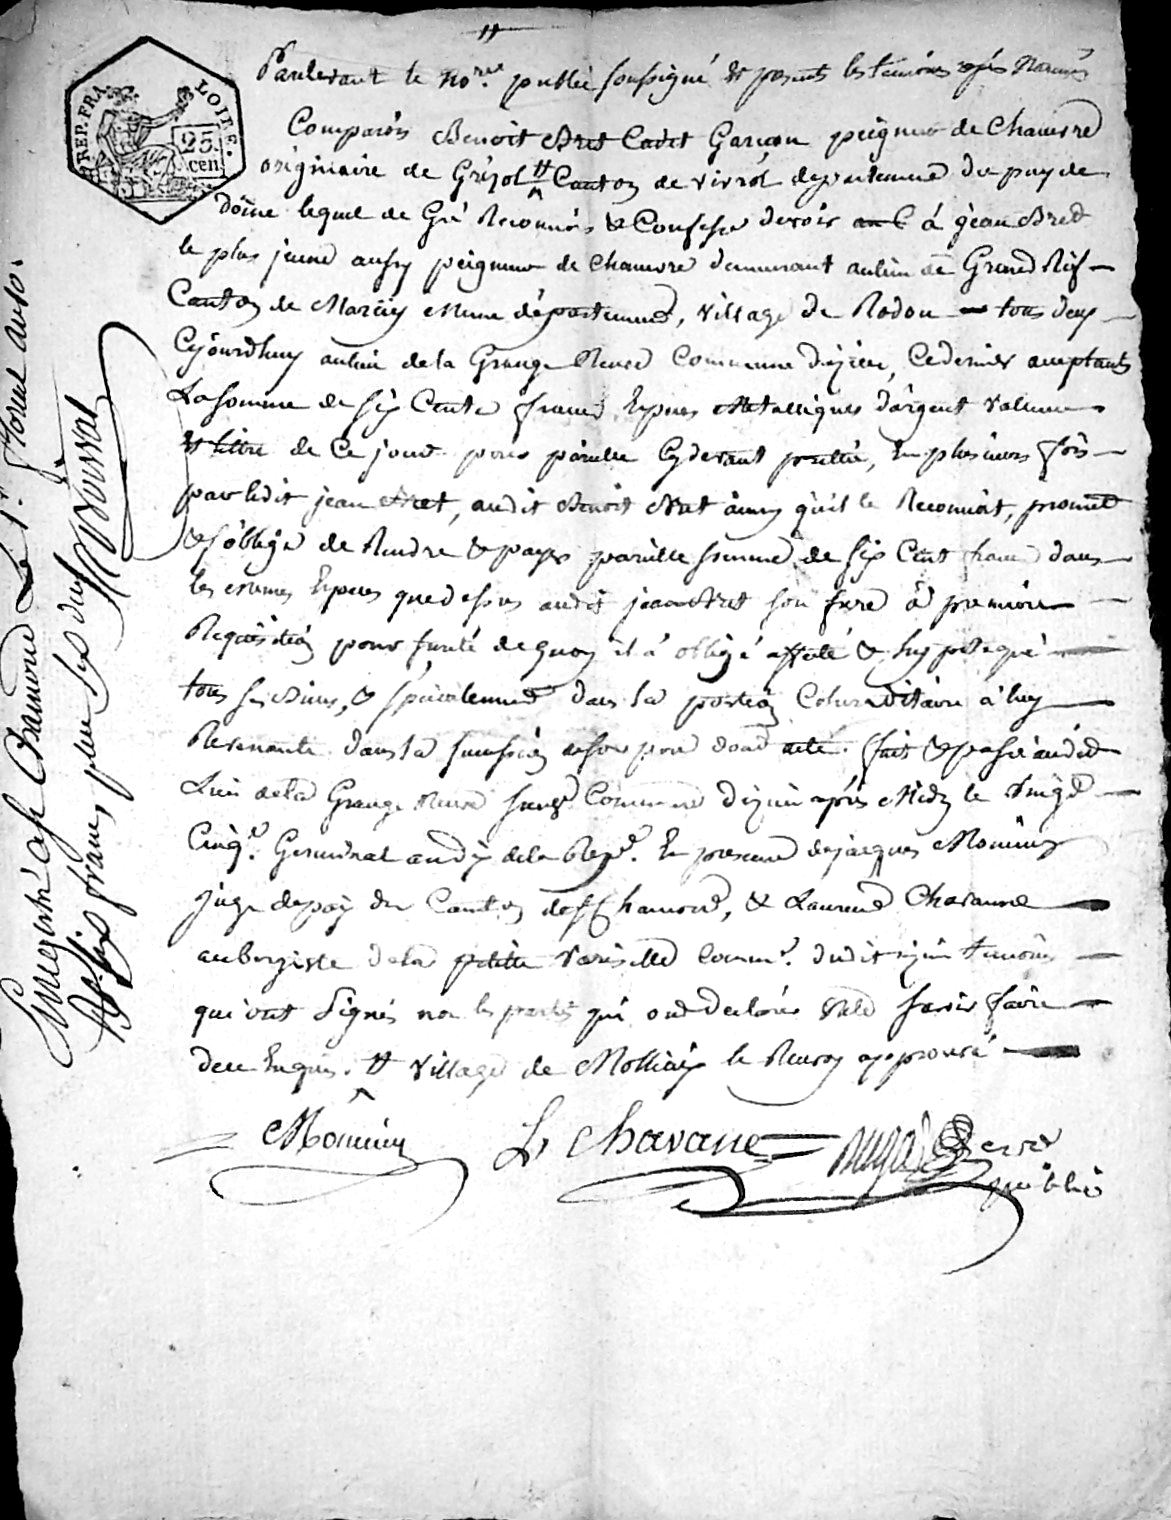 #
REP. FRA. LOIRE.
25 cen
Pardevant le no.re public soussigné & presents les témoins après nommés
Comparois Benoit Bret Cadet Garçon peigneur de Chanvre
originaire de Grézol # Canton de Vivrol departement du puy de
dôme lequel de Gré Reconnois & Confesse devoir à jean Bret
le plus jeune aussy peigneur de Chanvre demeurant au lieu de Grand Rif
Canton de même département, village de Rodou tous deux
Cejourdhuy au lieu de la Grange Neuve Commune d'izieu, Ce dernier acceptant
La somme de six Cents francs Espèces Métalliques d'argent valeur
& titre de Ce jour pour pareille Cydevant prêtée, En plusieurs fois
par ledit jean Bret, audit Benoit Bret ainsy qu'il le Reconnoit, promet
& s'oblige de Rendre & payer pareille somme de six Cent francs dans
les mêmes Espèces que dessus audit jean Bret son frere à première
Requisition pour sureté de quoy il a obligé affecté & hyppotequé
tous ses Biens, & spécialement dans la portion Cohereditaire à luy
Revenante dans la succession de son pere dont acte. fait & passé audit
Lieu de la Grange Neuve susd.e Commune d'izieu après Midy le vingt
Cinq.e Germinal an dix de la Rep.e. En presence de jacques Monnier
juge de paix du Canton de St Chamond, & Laurend Chavanne
aubergiste de la petite Variselle Comm.e dudit izieu témoins
qui ont Signés non les parties qui ont declarés ne le savoir faire
de ce Enquis. # Village de le Renvoy approuvé
Monnier
L. Chavane
public
Enregistré à St Chamond Le 1.er floreal an 10.
six francs plus six deci